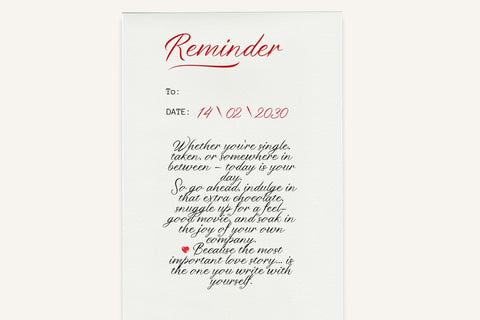 Reminder
To:
DATE: 14 \ 02 \ 2030
Whether you're single,
taken, or somewhere in
between – today is your
day.
So go ahead, indulge in
that extra chocolate,
snuggle up for a feel-
good movie, and soak in
the joy of your own
company.
❤️ Because the most
important love story... is
the one you write with
yourself.